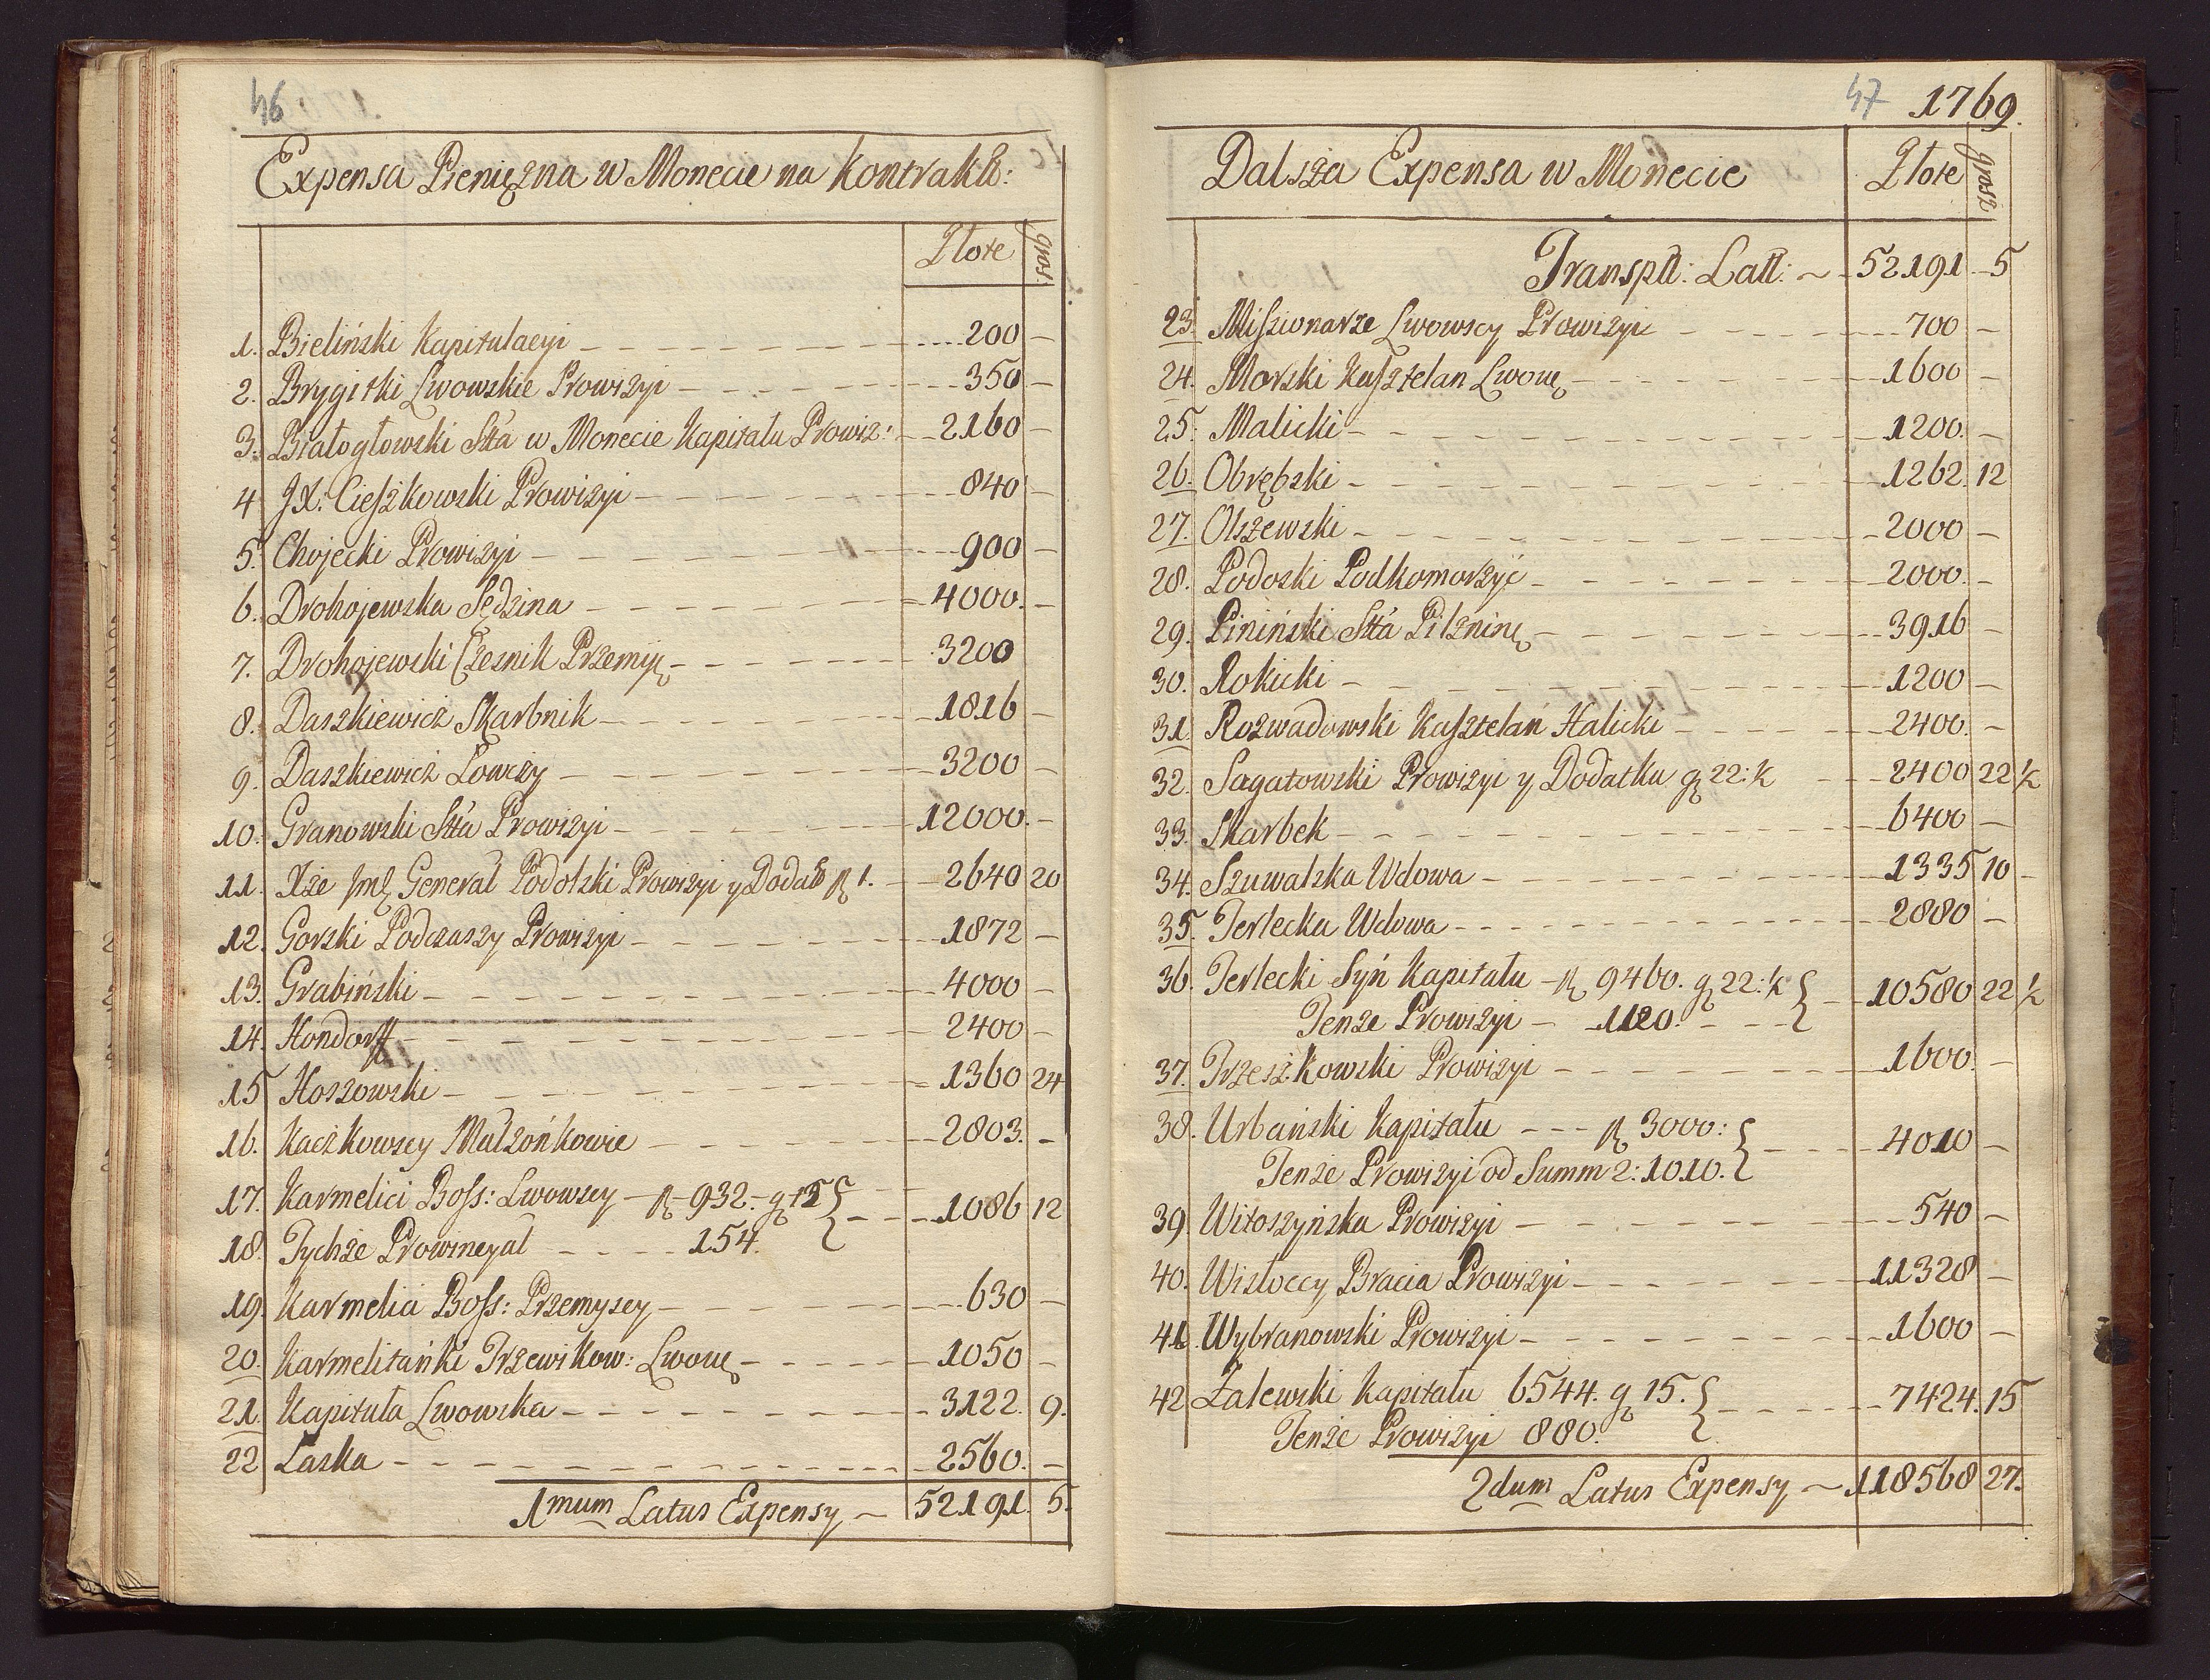 46
Expensa Pieniężna w Monecie na Kontrakt:
Złote grosz:
1. Bieliński Kapitulacyi 200 -
2. Brygitki Lwowskie Prowizyi 350 -
3. Białogłowski Stta w Monecie Kapitału Prowiz: 2160 -
4 JX: Cieszkowski Prowizyi 840 -
5. Chojecki Prowizyi 900 -
6. Drohojewska Sędzina 4000. -
7. Drohojewski Czesnik Przemyę 3200
8. Daszkiewicz Skarbnik 1816 -
9. Daszkiewicz Łowczy 3200 -
10. Granowski Stta Prowizyi 12000. -
11. Xże Jmę Generał Podolski Prowizyi y Dodatt 1. 2640 20
12. Gorski Podczaszy Prowizyi 1872 -
13. Grabiński 4000 -
14. Hondorff 2400 -
15 Hoszowski 1360 24
16. Kaczkowscy Małżonkowie 2803. -
17. Karmelici Boss: Lwowscy 932. g 12 } 1086 12
18. Tychże Prowincyał 154.
19. Karmelici Boss: Przemyscy 630 -
20. Karmelitańki Trzewikow: Lwowę 1050 -
21. Kapituła Lwowska 3122. 9.
22 Łaska 2560. -
1mum Latus Expensy 52191. 5.
47 1769.
Dalsza Expensa w Monecie Złote grosz
Transptt: Latt: 52191 5
23. Missionarze Lwowscy Prowizyi 700 -
24. Morski Kasztelan Lwowę 1600 -
25. Malicki 1200. -
26. Obrębski 1262. 12
27. Olszewski 2000 -
28. Podoski Podkomorzyć 2000. -
29. Piniński Stta Pilzninę 3916 -
30. Rokicki 1200 -
31. Rozwadowski Kasztelan Halicki 2400. -
32. Sagatowski Prowizyi y Dodatku g 22:½ 2400 22 ½
33. Skarbek 6400 -
34. Szuwalska Wdowa 1335 10 -
35. Terlecka Wdowa 2880 -
36. Terlecki Syń Kapitału 9460. g 22:½ } 10580 22 ½
Tenże Prowizyi 1120.
37. Trzeszkowski Prowizyi 1600. -
38. Urbański Kapitału 3000: } 4010 -
Tenże Prowizyi od Summ 2: 1010.
39. Witoszyńska Prowizyi 540 -
40. Wisłoccy Bracia Prowizyi 11328 -
41. Wybranowski Prowizyi 1600 -
42 Zalewski Kapitału 6544. g 15. } 7424. 15
Tenże Prowizyi 880.
2dum Latus Expensy 118568 27.